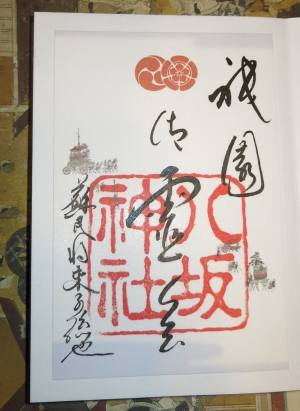 祇園
御霊会
八坂
神社
蘇民将来子孫也